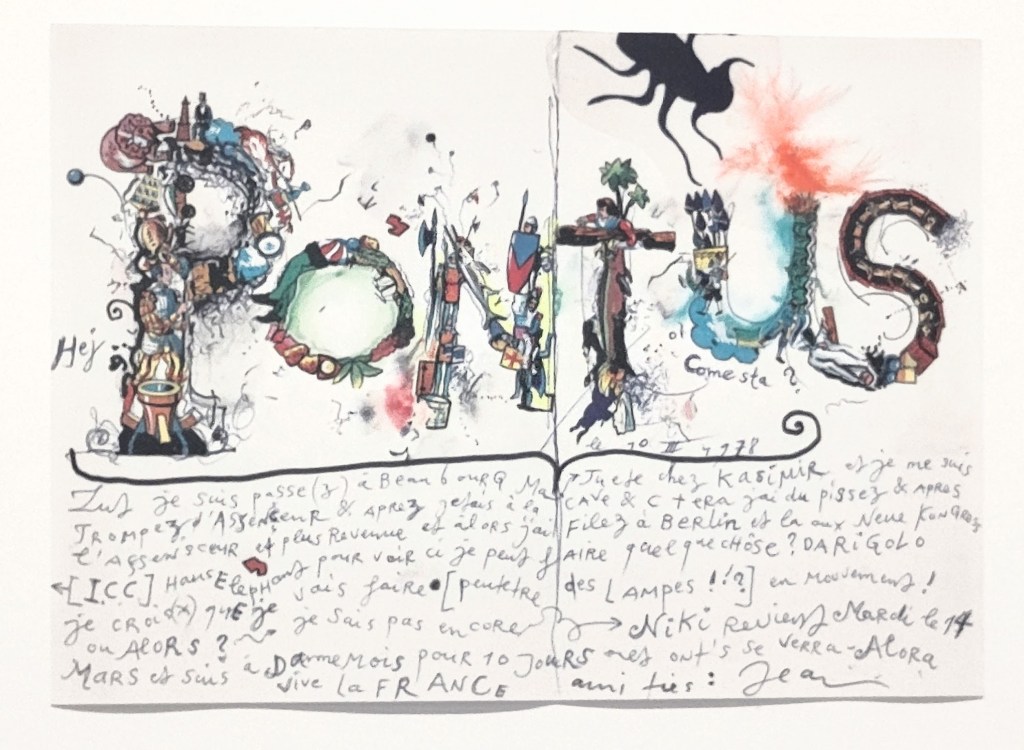 Hej PONTUS
ol
Come sta ?
le 10 III 1978
Zut je suis passe(z) à BeaubourG Ma
TROMPEz d'AssenSEUR & APREZ jetais à la
l'AssenSCEUR et plus Revenue et alors j'ai
[ICC] Hans ElepHant pour voir ci je peut f
je croi(x) que je vais faire [peutetre
ou AlORS ? je Sais pas encore
MARS et suis à DamneMois pour 10 JouRS
vive la FRANCE
Juete chez KASiMiR et je me suis
CAVE & C tera jai du pissez & APRES
Filez à BERLIN et la aux Neue KonGRess
AIRE quelqueCHôse ? DARiGOLO
des LAMPES !!?] en Mouvement !
NiKi Revient Mardi le 14
ont's se VERRA - AlORA
amities : Jean